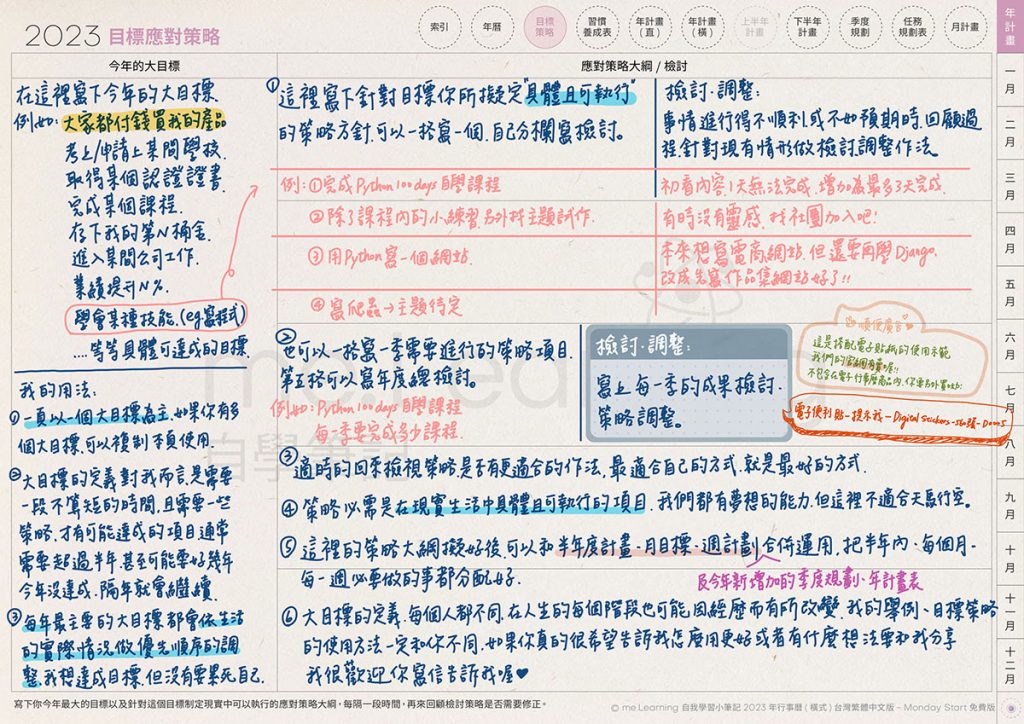 2023 目標應對策略
索引
年曆
目標
策略
習慣
養成表
年計畫
(直)
年計畫
(橫)
上半年
計畫
下半年
計畫
季度
規劃
任務
規劃表
月計畫
年計畫
一月
二月
三月
四月
五月
六月
七月
八月
九月
十月
十一月
十二月
今年的大目標
應對策略大綱 / 檢討
在這裡寫下今年的大目標.
例如: 大家都付錢買我的產品
考上/申請上某間學校.
取得某個認證證書.
完成某個課程.
存下我的第N桶金.
進入某間公司工作.
業績提升N%.
學會某種技能.(eg寫程式)
....等等具體可達成的目標.
我的用法:
①一頁以一個大目標為主,如果你有多
個大目標,可以複製本頁使用.
②大目標的定義對我而言是需要
一段不算短的時間,且需要一些
策略,才有可能達成的項目通常
需要超過半年,甚至可能要好幾年
今年沒達成,隔年就會繼續.
③每年最主要的大目標都會依生活
的實際情況做優先順序的調
整,我想達成目標,但沒有要累死自己.
①這裡寫下針對目標你所擬定"具體且可執行"
的策略方針,可以一格寫一個,自己分欄寫檢討。
檢討·調整:
事情進行得不順利,或不如預期時,回顧過
程,針對現有情形做檢討,調整作法
例:①完成Python100days自學課程
初看內容,1天無法完成,增加為最多3天完成.
②除了課程內的小練習,另外找主題試作.
有時沒有靈感,找社團加入吧!
③用Python寫一個網站.
本來想寫電商網站,但還要再學Django,
改成先寫作品集網站好了!!
④寫爬蟲→主題待定
②也可以一格寫一季需要進行的策略項目.
第五格可以寫年度總檢討。
例如:Python100days自學課程
每一季要完成多少課程.
檢討·調整:
寫上每一季的成果檢討·
策略調整。
順便廣告
這是搭配電子貼紙的使用示範
我們的官網有賣喔!!
不包含在電子行事曆商品內,你要另外買哈哈:
電子便利貼-提示我-Digital Stickers-560張-D005
③適時的回來檢視策略是否有更適合的作法,最適合自己的方式,就是最好的方式.
④策略必需是在現實生活中具體且可執行的項目,我們都有夢想的能力,但這裡不適合天馬行空。
⑤這裡的策略大綱擬好後,可以和半年度計畫、月目標、週計劃合併運用,把半年內、每個月、
每一週必要做的事都分配好.
及今年新增加的季度規劃、年計畫表
⑥大目標的定義,每個人都不同,在人生的每個階段也可能因經歷而有所改變,我的舉例、目標策略
的使用方法一定和你不同,如果你真的很希望告訴我怎麼用更好或者有什麼想法要和我分享
我很歡迎你寫信告訴我喔♥
me.Learning
自學筆記
寫下你今年最大的目標以及針對這個目標制定現實中可以執行的應對策略大綱，每隔一段時間，再來回顧檢討策略是否需要修正。
© me.Learning 自我學習小筆記 2023 年行事曆 ( 橫式 ) 台灣繁體中文版 - Monday Start 免費版